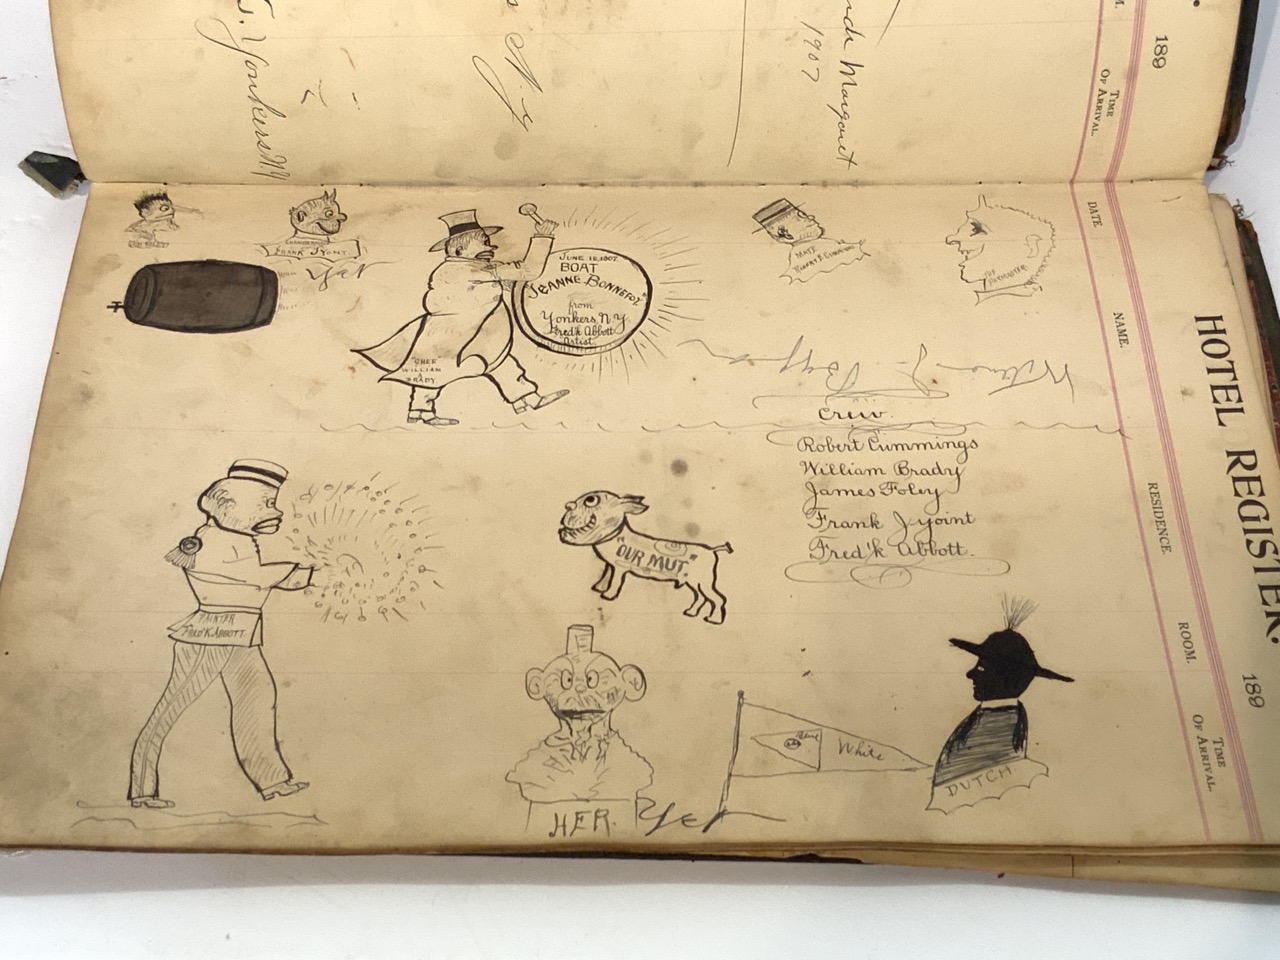 T. Yonkers N.Y.
N.Y.
Margaret
1907
189
TIME
OF ARRIVAL.
FRANK J YOINT.
Yet
JUNE 16, 1907.
BOAT
JEANNE BONNEFOY.
from
Yonkers, N.Y.
Fred'k Abbott
Artist
WILLIAM
BRADY.
MATE
THE
Crew.
Robert Cummings
William Brady
James Foley
Frank J Yoint
Fred'k Abbott.
PAINTER
FRED'K ABBOTT.
"OUR MUT."
HER.
Yet
Blue
White
DUTCH
HOTEL REGISTER.
189
DATE
NAME.
RESIDENCE.
ROOM.
TIME
OF ARRIVAL.